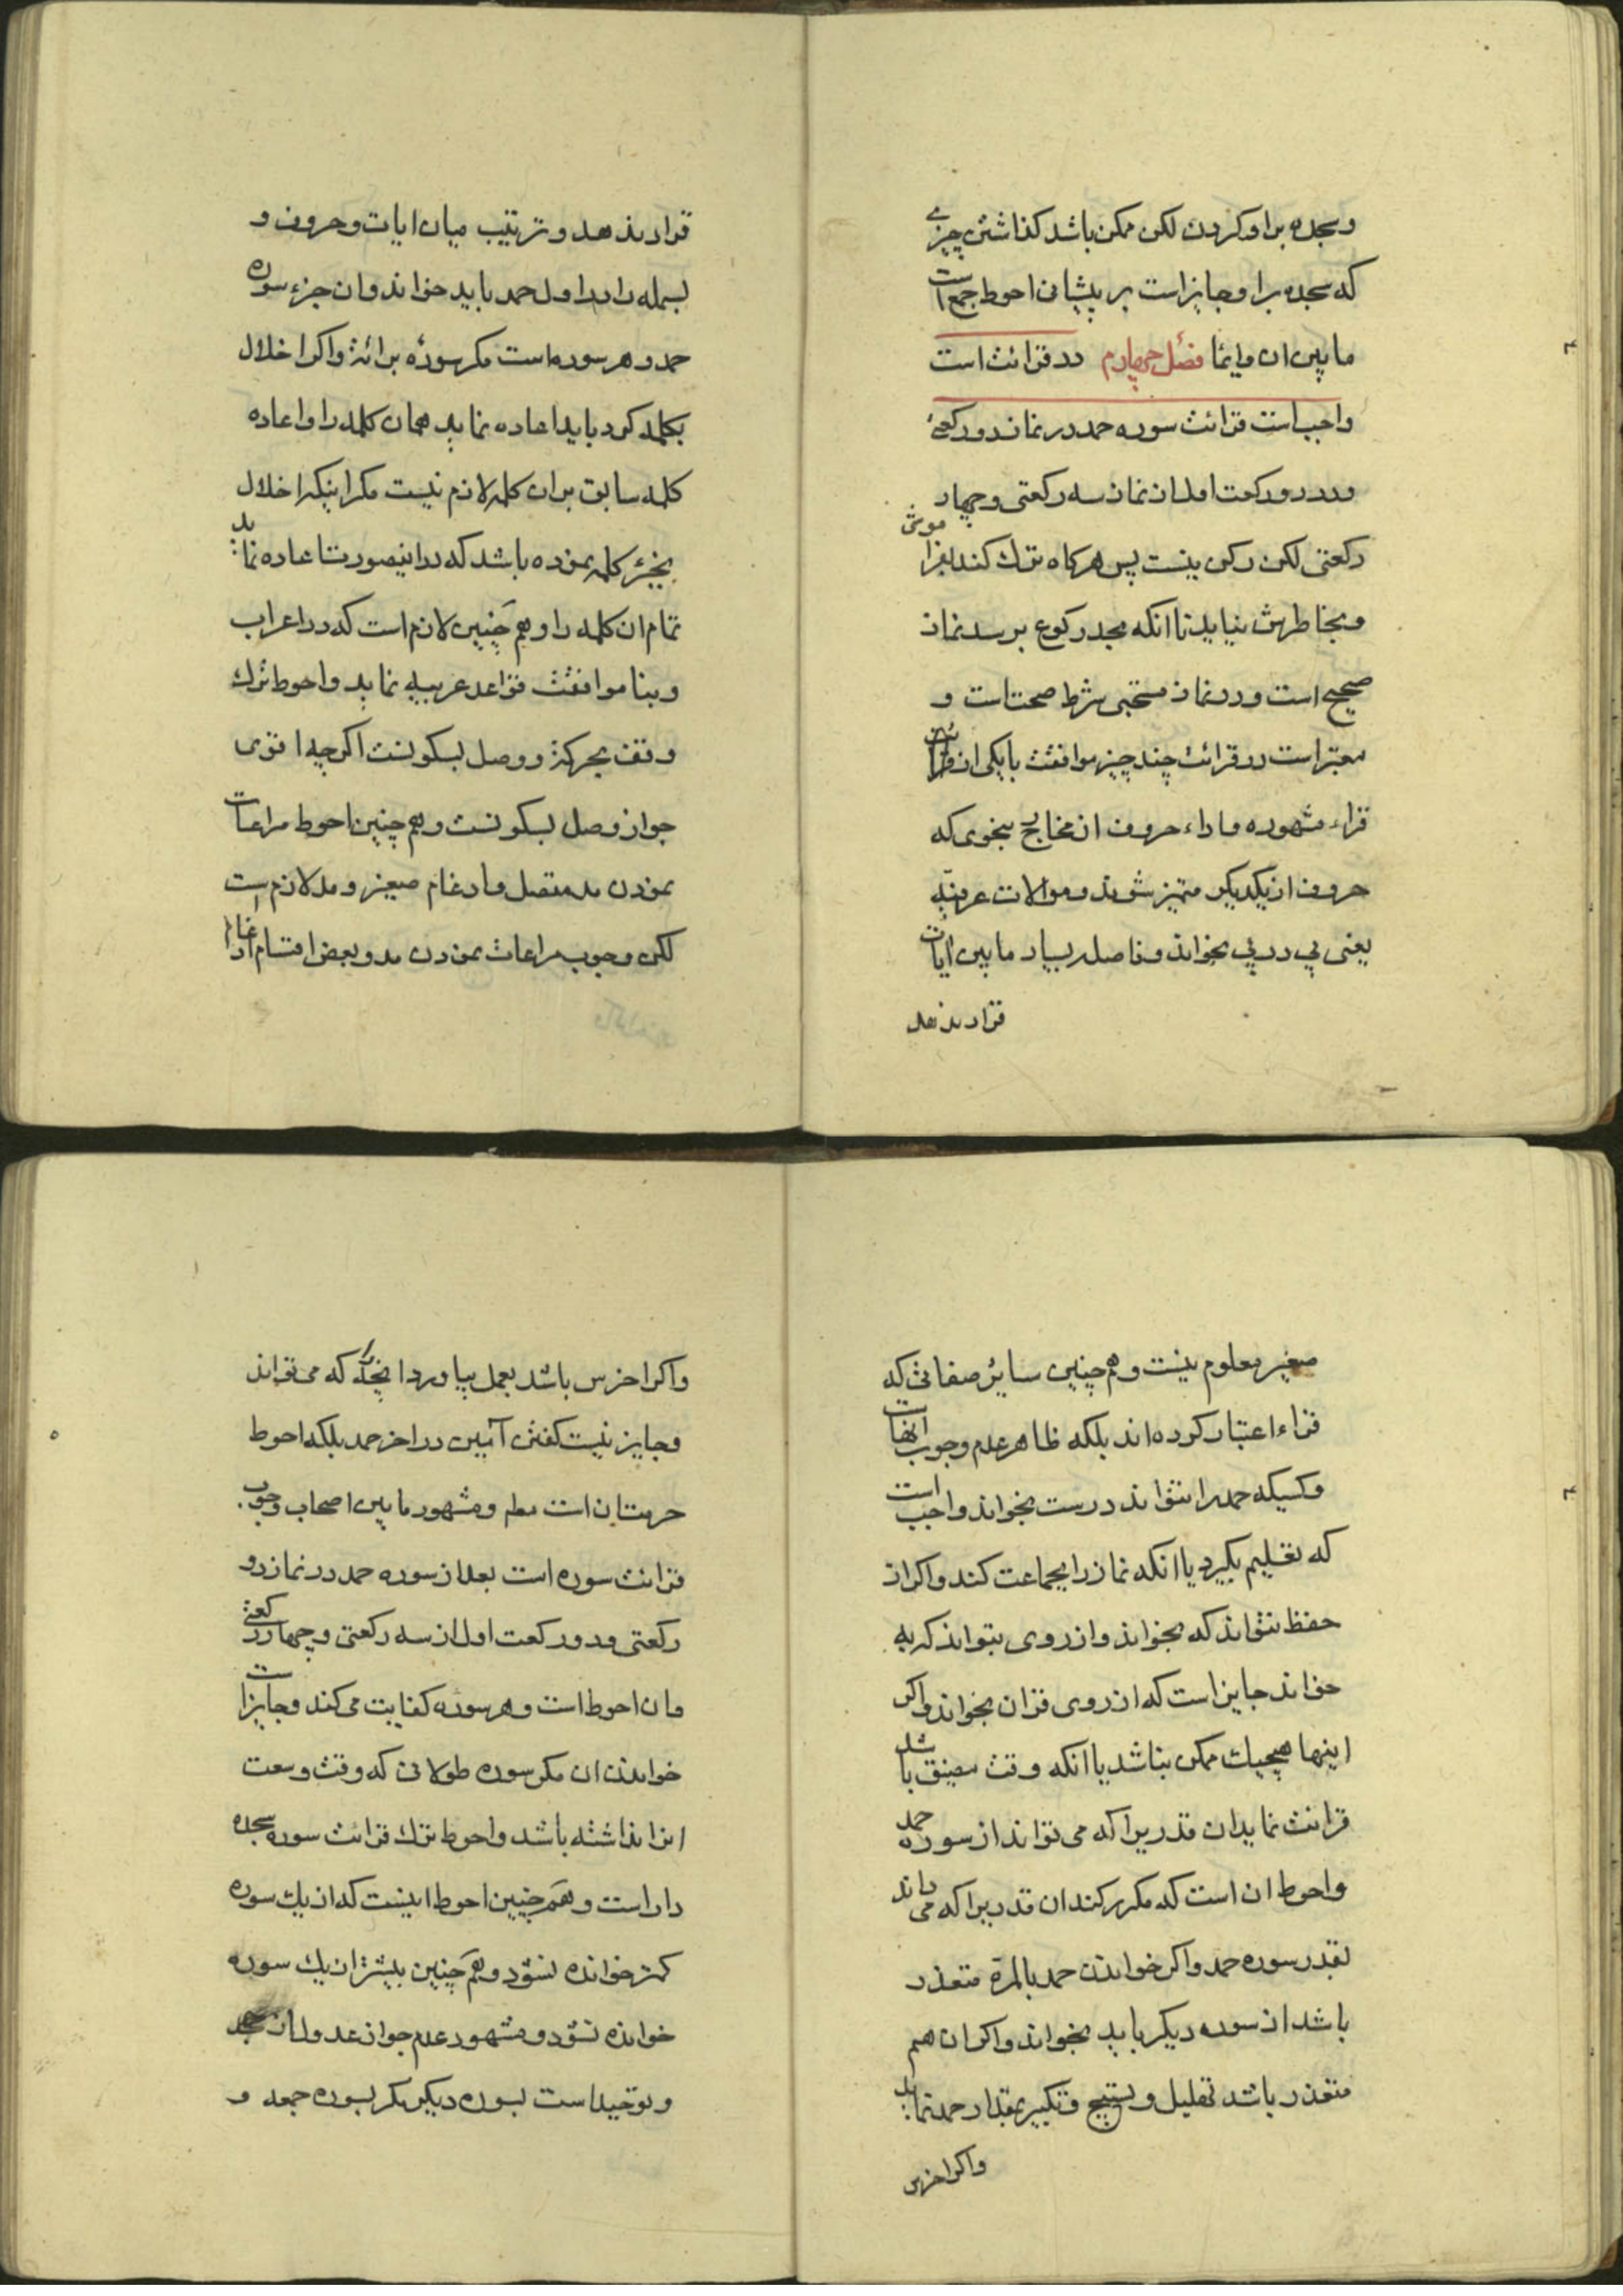 و سجده براو كردن لكن ممكن باشد كذاشتن چيزى
كه سجده براو جايز است بر پيشانى احوط جمع است
ما بين ان و ايما فصل چهارم در قرائت است
واجب است قرائت سوره حمد در نماز دو ركعتى
و در دو ركعت اول از نماز سه ركعتى و چهار
ركعتى لكن ركن نيست پس هركاه ترك كند فراموشى
و بخاطرش نيايد تا انكه بحد ركوع برسد نماز
صحيح است و در نماز مستحبى شرط صحت است و
معتبر است در قرائت چند چيز موافقت با يكى از قرائت
قراء مشهوره و اداء حروف از مخارج بنحوى كه
حروف از يكديكر متميز شوند و موالات عرفيه
يعنى پي در پي بخواند و فاصله بسيار ما بين ايات
قرار ندهد
قرار ندهد و ترتيب ميان ايات و حروف و
بسمله را در اول حمد بايد خواند و ان جزء سوره
حمد و هر سوره است مكر سورۀ برائة و اكر اخلال
بكلمه كرد بايد اعاده نمايد همان كلمه را و اعاده
كلمه سابق بران كلمه لازم نيست مكر اينكه اخلال
بجزء كلمه نموده باشد كه در اينصورت اعاده نمايد
تمام ان كلمه را و هم چنين لازم است كه در اعراب
و بنا موافقت قواعد عربيه نمايد و احوط ترك
وقف بحركة و وصل بسكونست اكر چه اقوى
جواز وصل بسكونست و هم چنين احوط مراعات
نمودن مد متصل و ادغام صغير و مد لازم است
لكن وجوب مراعات نمودن مد و بعض اقسام ادغام
صغير معلوم نيست و هم چنين ساير صفاتى كه
قراء اعتبار كرده اند بلكه ظاهر عدم وجوب انهاست
و كسيكه حمد را نتواند درست بخواند واجب است
كه تعليم بكيرد يا انكه نماز را بجماعت كند و اكر از
حفظ نتواند كه بخواند و از روى بتواند كه به
خواند جايز است كه از روى قران بخواند و اكر
اينها هيچيك ممكن نباشد يا انكه وقت مضيق باشد
قرائت نمايد ان قدريرا كه مى تواند از سوره حمد
و احوط ان است كه مكرر كند ان قدريرا كه مى داند
بقدر سوره حمد و اكر خواندن حمد بالمرة متعذر
باشد از سوره ديكر بايد بخواند و اكر ان هم
متعذر باشد تهليل و تسبيح و تكبير بمقدار حمد نمايد
و اكر اخرس
و اكر اخرس باشد بعمل بياورد انچه را كه مى تواند
و جايز نيست كفتن آمين در اخر حمد بلكه احوط
حرمت ان است مطم و مشهور ما بين اصحاب وجوب
قرائت سوره است بعد از سوره حمد در نماز دو
ركعتى و دو ركعت اول از سه ركعتى و چهار ركعتى
و ان احوط است و هر سوره كفايت مى كند و جايز است
خواندن ان مكر سوره طولانى كه وقت وسعت
انرا نداشته باشد و احوط ترك قرائت سوره سجده
دار است و هم چنين احوط اينست كه از يك سوره
كمتر خوانده نشود و هم چنين بيشتر از يك سوره
خوانده نشود و مشهور عدم جواز عدول از
و توحيد است بسوره ديكر مكر بسوره جمعه و